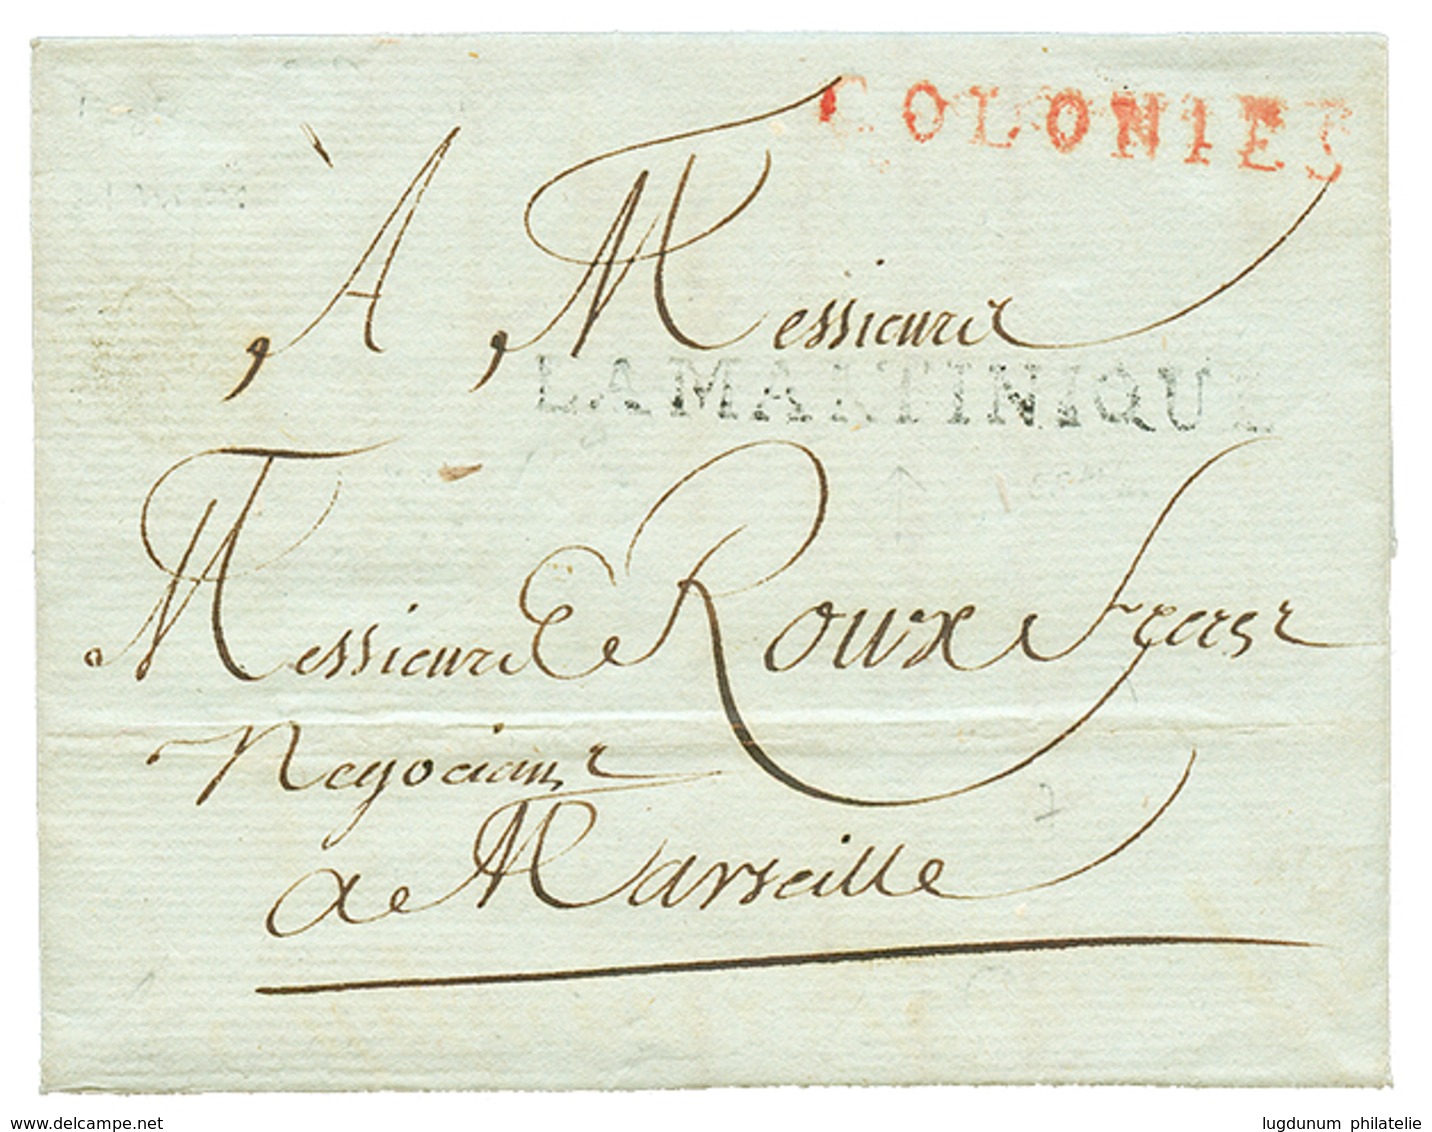 COLONIES
À Messieurs
LA MARTINIQUE
Messieurs Roux freres
Negocians
a Marseille
www.delcampe.net
lugdunum philatelie